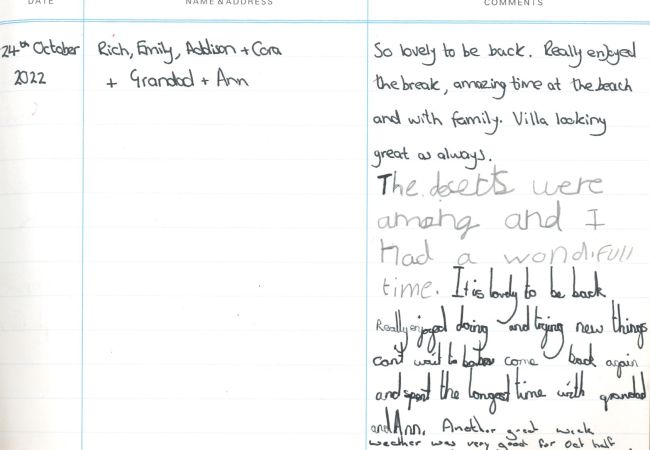 DATE NAME & ADDRESS COMMENTS
24th October
2022
Rich, Emily, Addison + Cora
+ Grandad + Ann
So lovely to be back. Really enjoyed
the break, amazing time at the beach
and with family. Villa looking
great as always.
The deserts were
amanzg and I
Had a wondifull
time. It is lovely to be back
Really enjoyed doing and trying new things
can't wait to come back again
and spent the longest time with grandad
and Ann. Another great week
weather was very good for Oct half